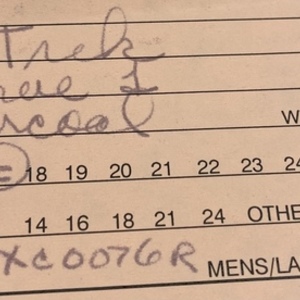 Trek
I
W
18 19 20 21 22 23 24
14 16 18 21 24 OTHE
XC0076R MENS/LA